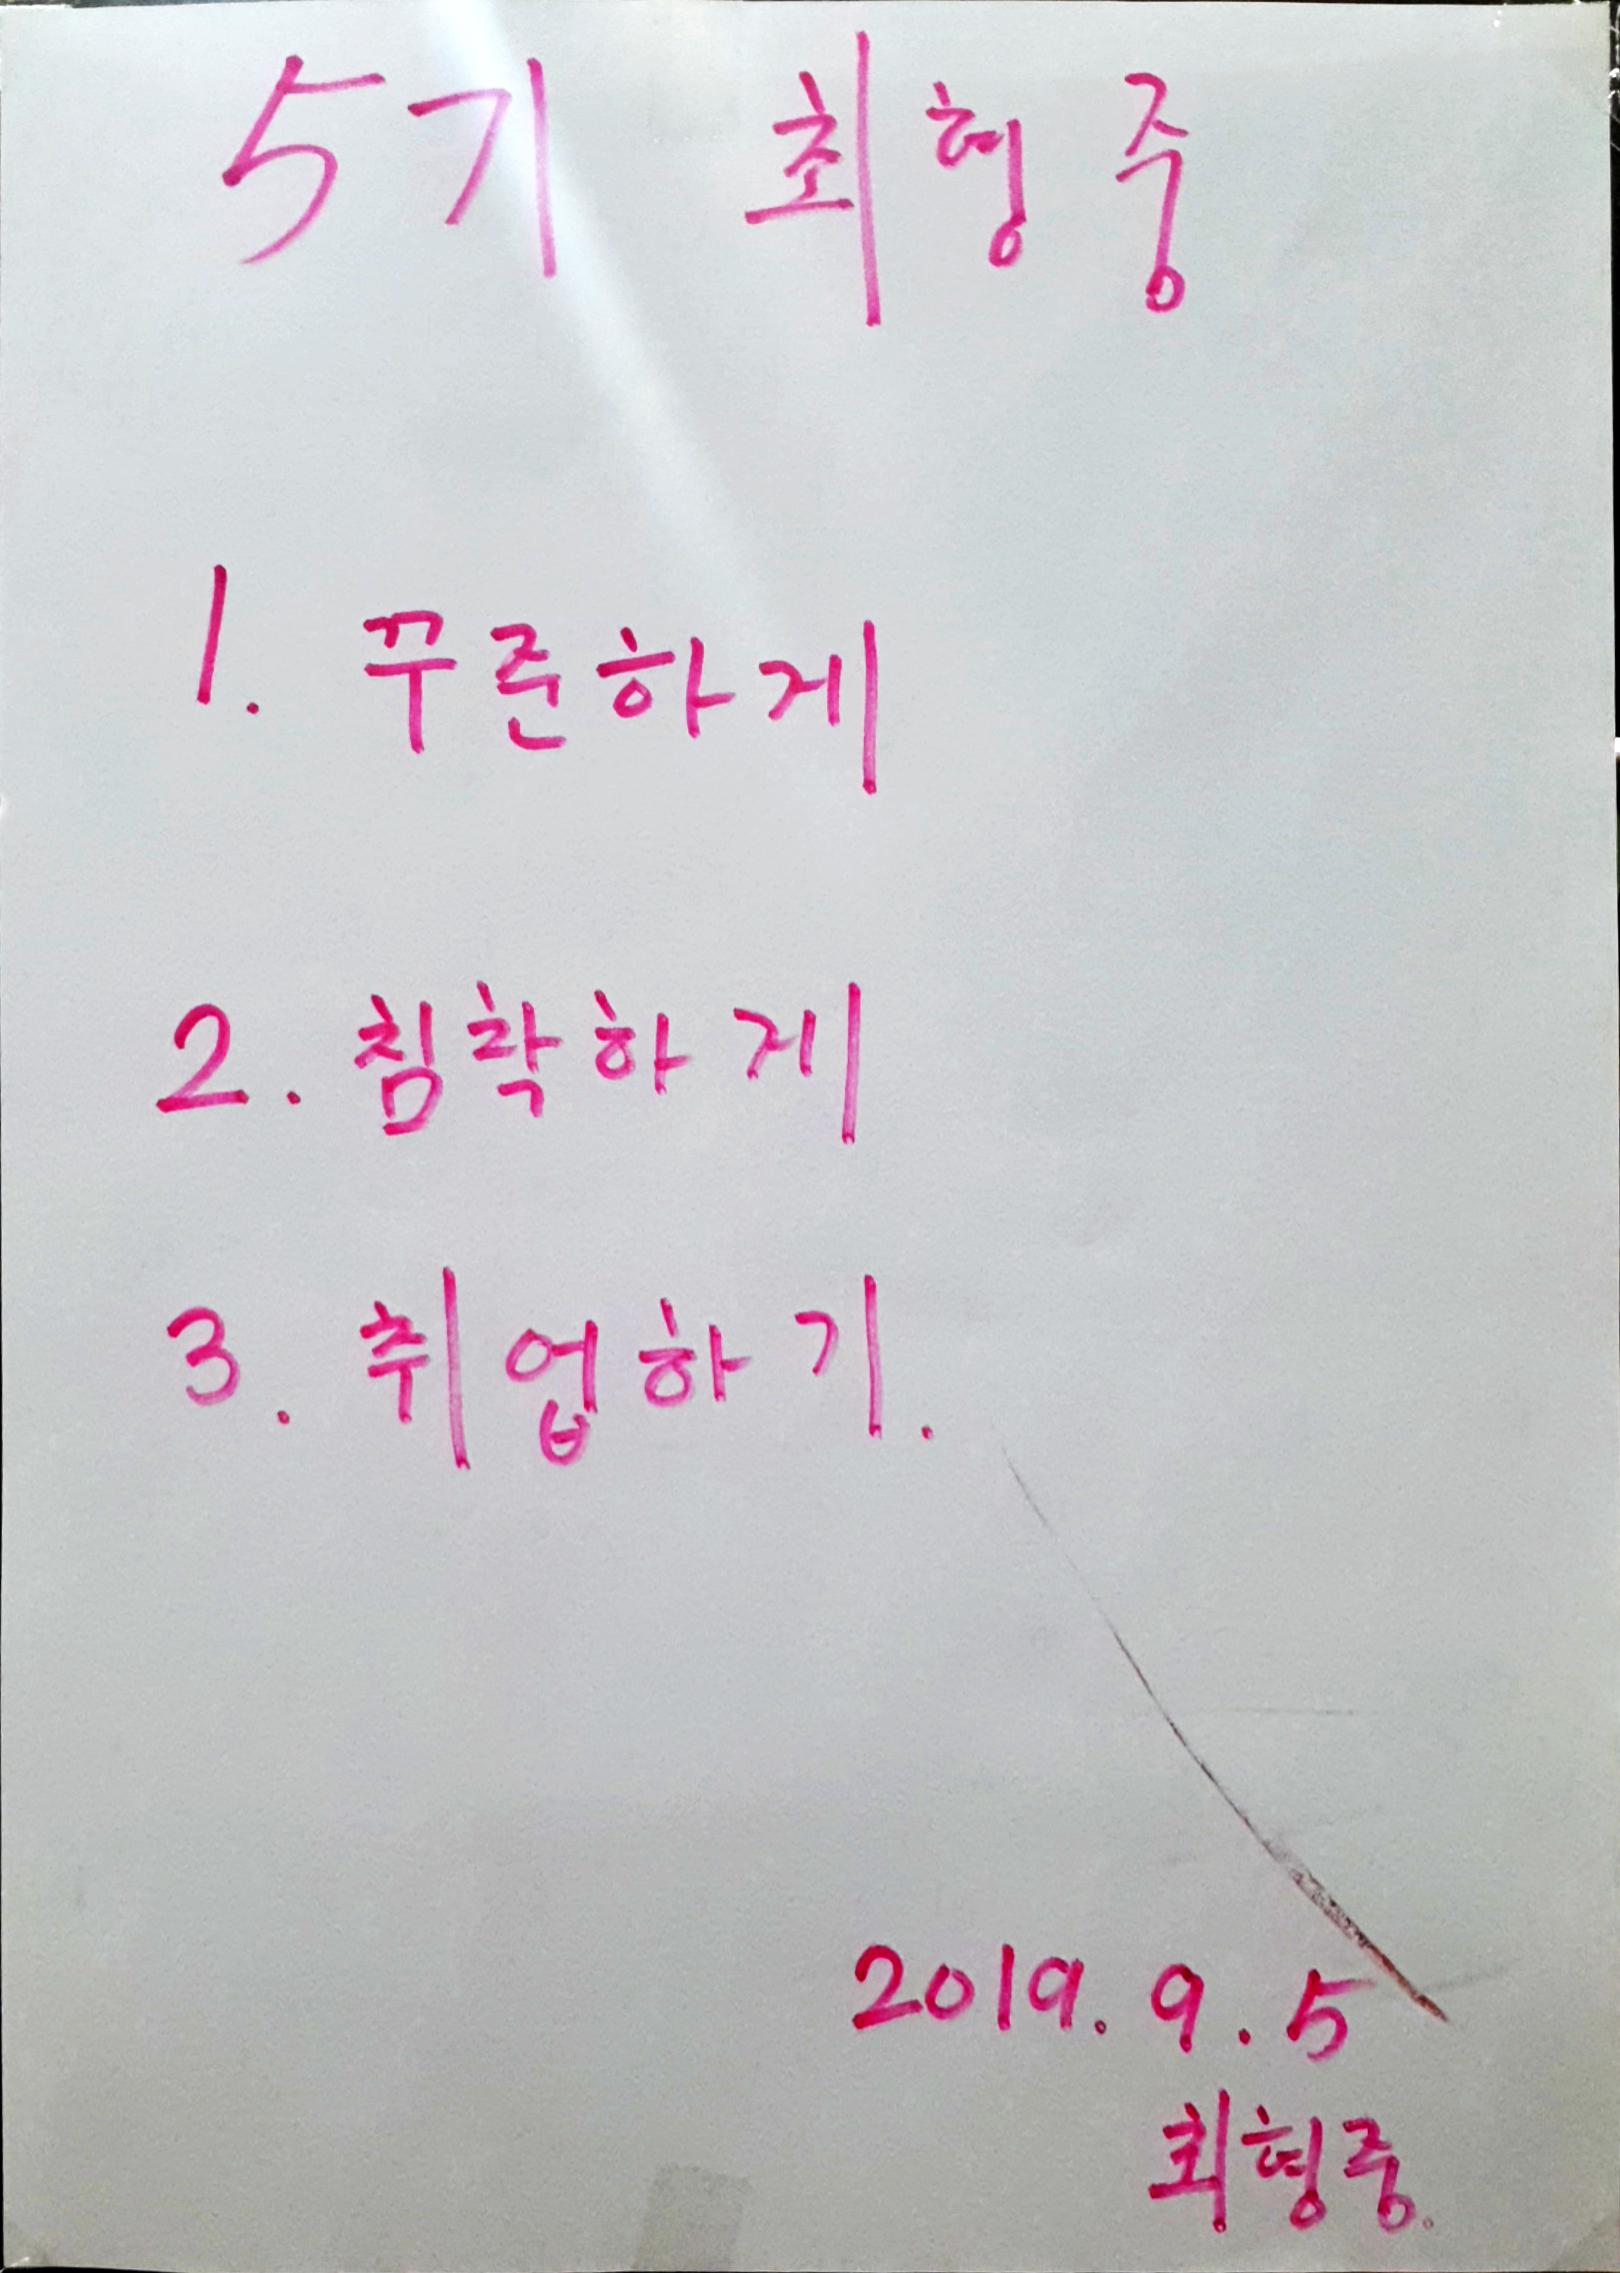 5기 최형중
1. 꾸준하게
2. 침착하게
3. 취업하기.
2019. 9. 5
최형중.